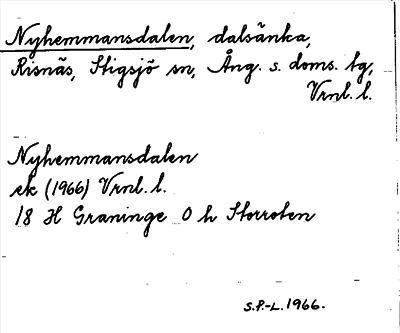 Nyhemmansdalen, dalsänka,
Risnäs, Stigsjö sn, Ång. s. doms. tg,
Vrnl. l.
Nyhemmansdalen
ek (1966) Vrnl. l.
18 H Graninge 0 h Storroten
S.P.-L. 1966.